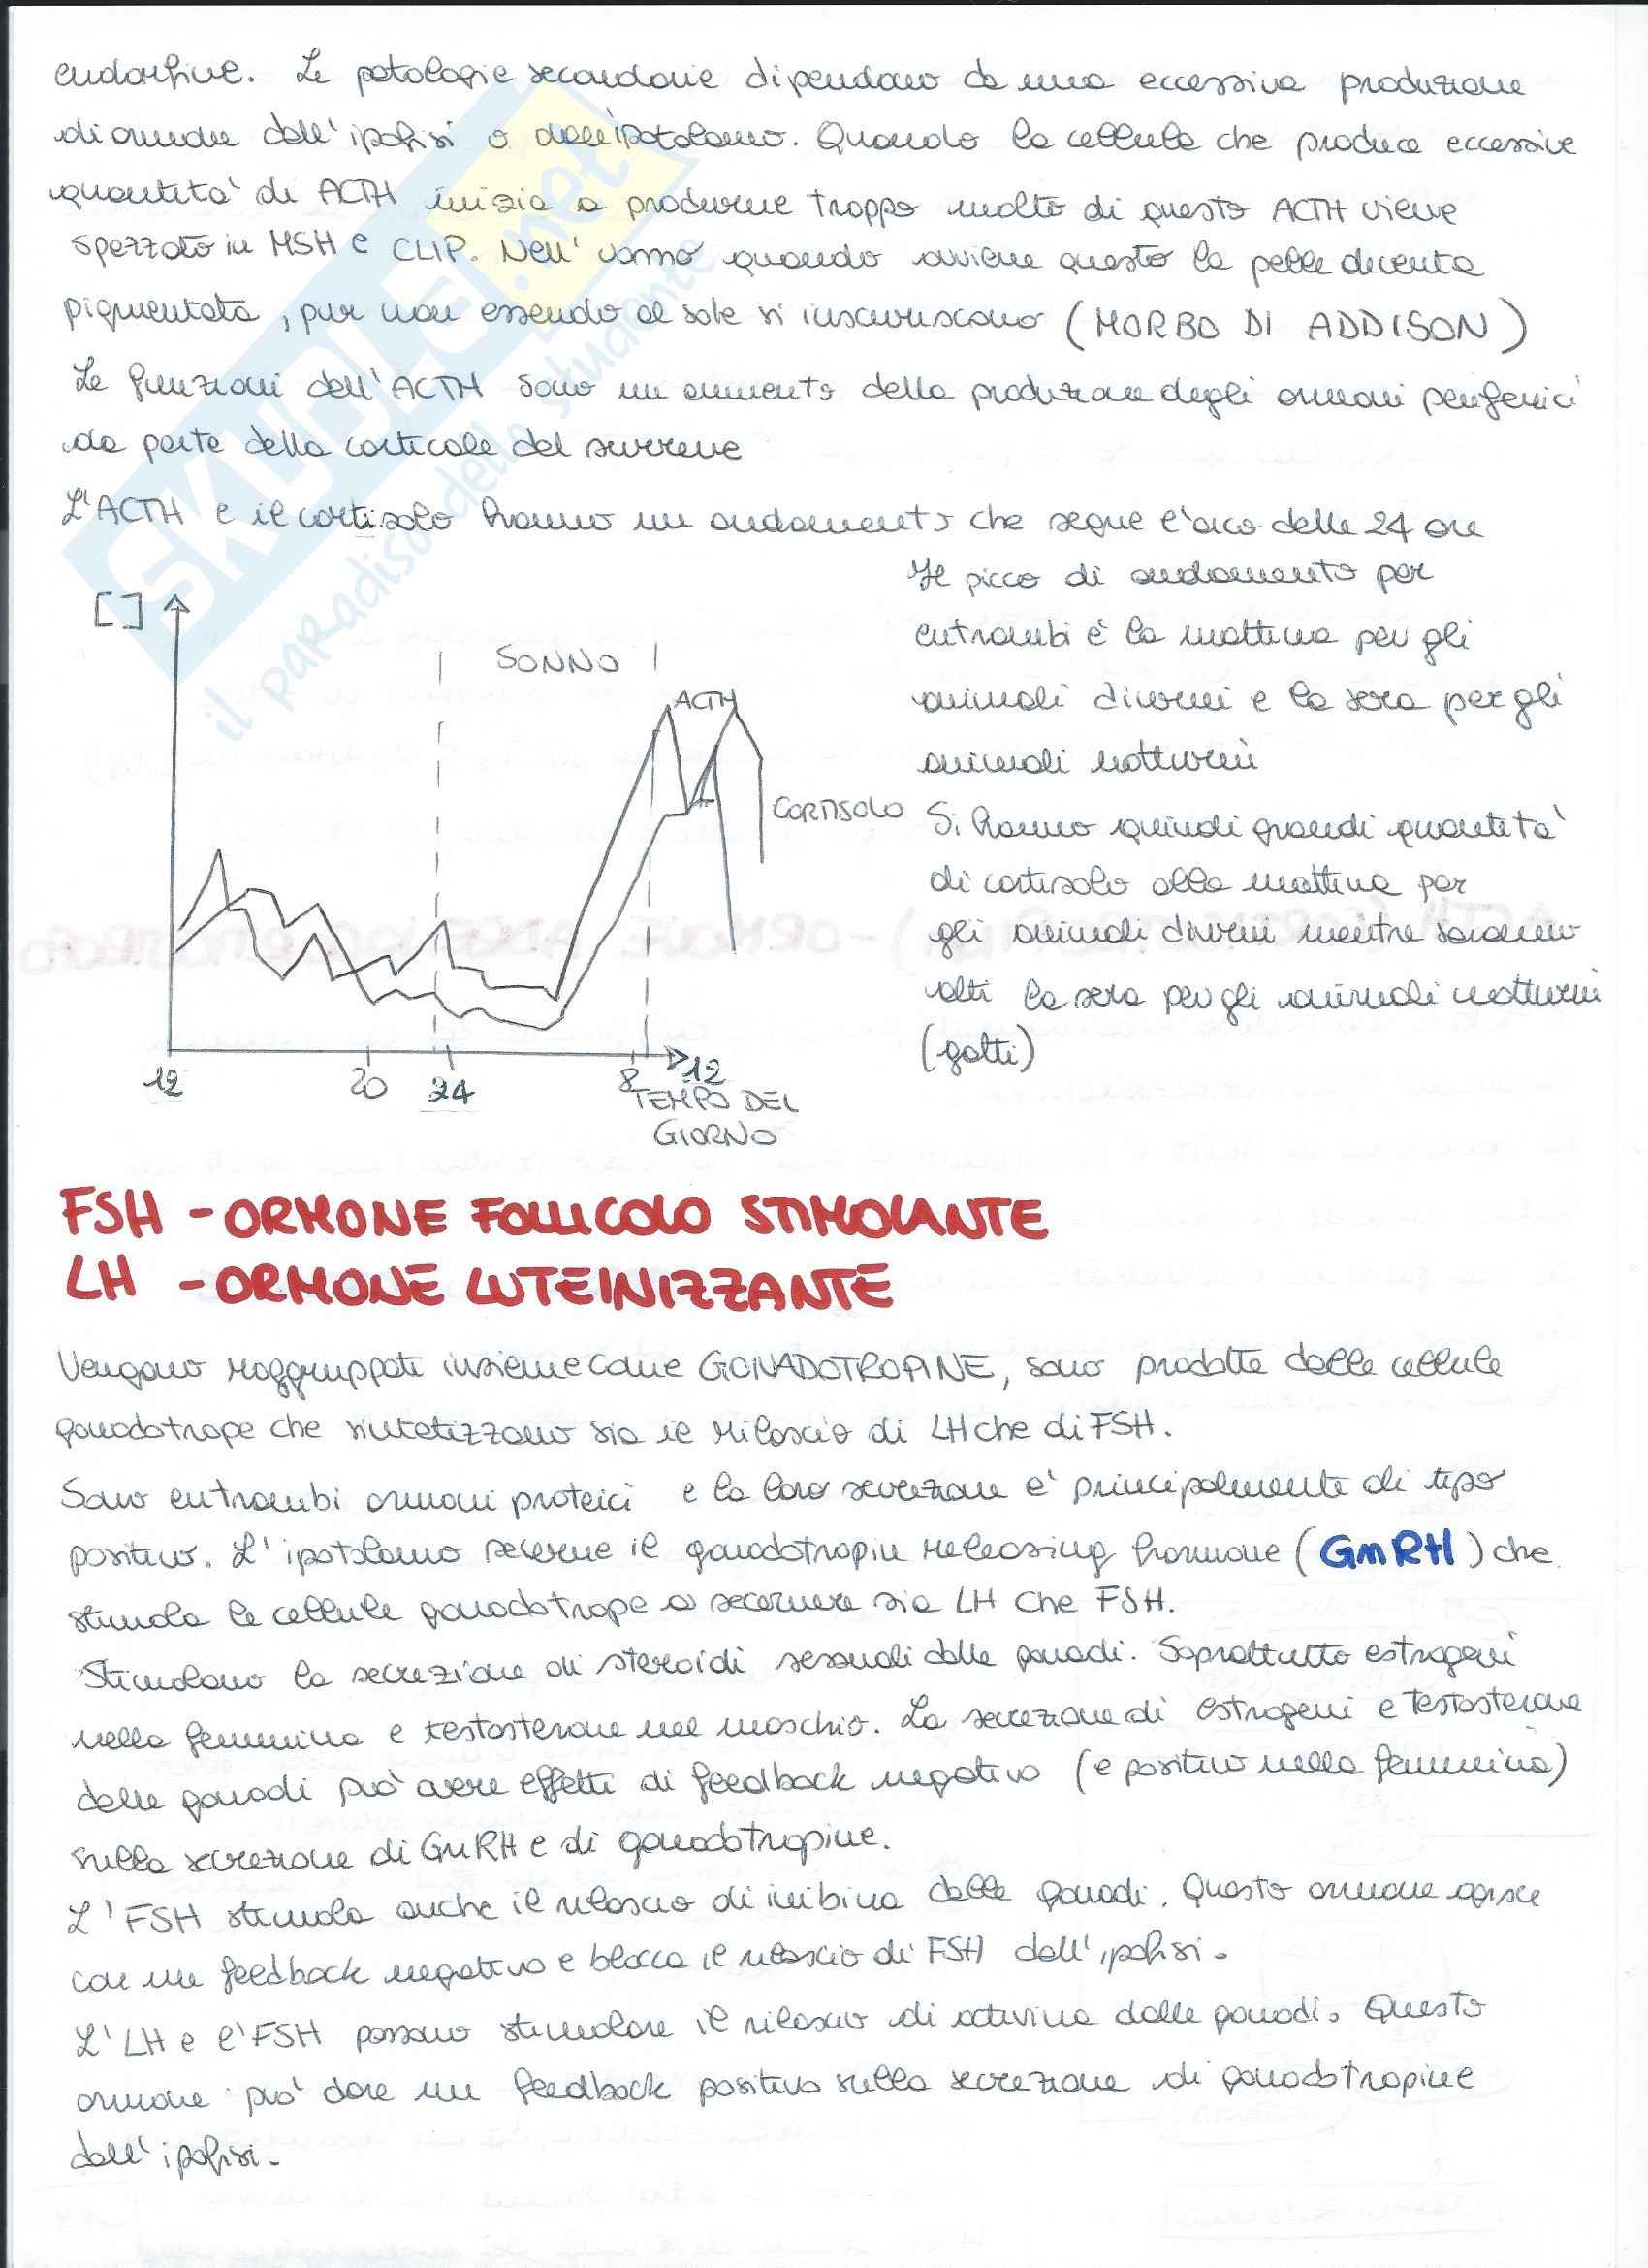 endorfine. Le patologie secondarie dipendono da una eccessiva produzione
di ormone dall'ipofisi o dall'ipotalamo. Quando la cellula che produce eccessive
quantità di ACTH inizia a produrne troppo molto di questo ACTH viene
spezzato in MSH e CLIP. Nell'uomo quando avviene questo la pelle diventa
pigmentata, pur non essendo al sole si inscuriscono (MORBO DI ADDISON)
Le funzioni dell'ACTH sono un aumento della produzione degli ormoni periferici
da parte della corticale del surrene
L'ACTH e il cortisolo hanno un andamento che segue l'arco delle 24 ore
Il picco di andamento per
entrambi è la mattina per gli
animali diurni e la sera per gli
animali notturni
Si hanno quindi grandi quantità
di cortisolo alla mattina per
gli animali diurni mentre saranno
alti la sera per gli animali notturni
(gatti)
[ ]
SONNO
ACTH
CORTISOLO
12 20 24 8 12
TEMPO DEL
GIORNO
FSH - ORMONE FOLLICOLO STIMOLANTE
LH - ORMONE LUTEINIZZANTE
Vengono raggruppati insieme come GONADOTROPINE, sono prodotte dalle cellule
gonadotrope che sintetizzano sia il rilascio di LH che di FSH.
Sono entrambi ormoni proteici e la loro secrezione è principalmente di tipo
positivo. L'ipotalamo secerne il gonadotropin releasing hormone (GnRH) che
stimola le cellule gonadotrope a secernere sia LH che FSH.
Stimolano la secrezione di steroidi sessuali dalle gonadi. Soprattutto estrogeni
nella femmina e testosterone nel maschio. La secrezione di estrogeni e testosterone
delle gonadi può avere effetti di feedback negativo (e positivo nella femmina)
sulla secrezione di GnRH e di gonadotropine.
L'FSH stimola anche il rilascio di inibina dalle gonadi. Questo ormone agisce
con un feedback negativo e blocca il rilascio di FSH dall'ipofisi.
L'LH e l'FSH possono stimolare il rilascio di activina dalle gonadi. Questo
ormone può dare un feedback positivo sulla secrezione di gonadotropine
dall'ipofisi.
SKUOLA.net
il paradiso dello studente